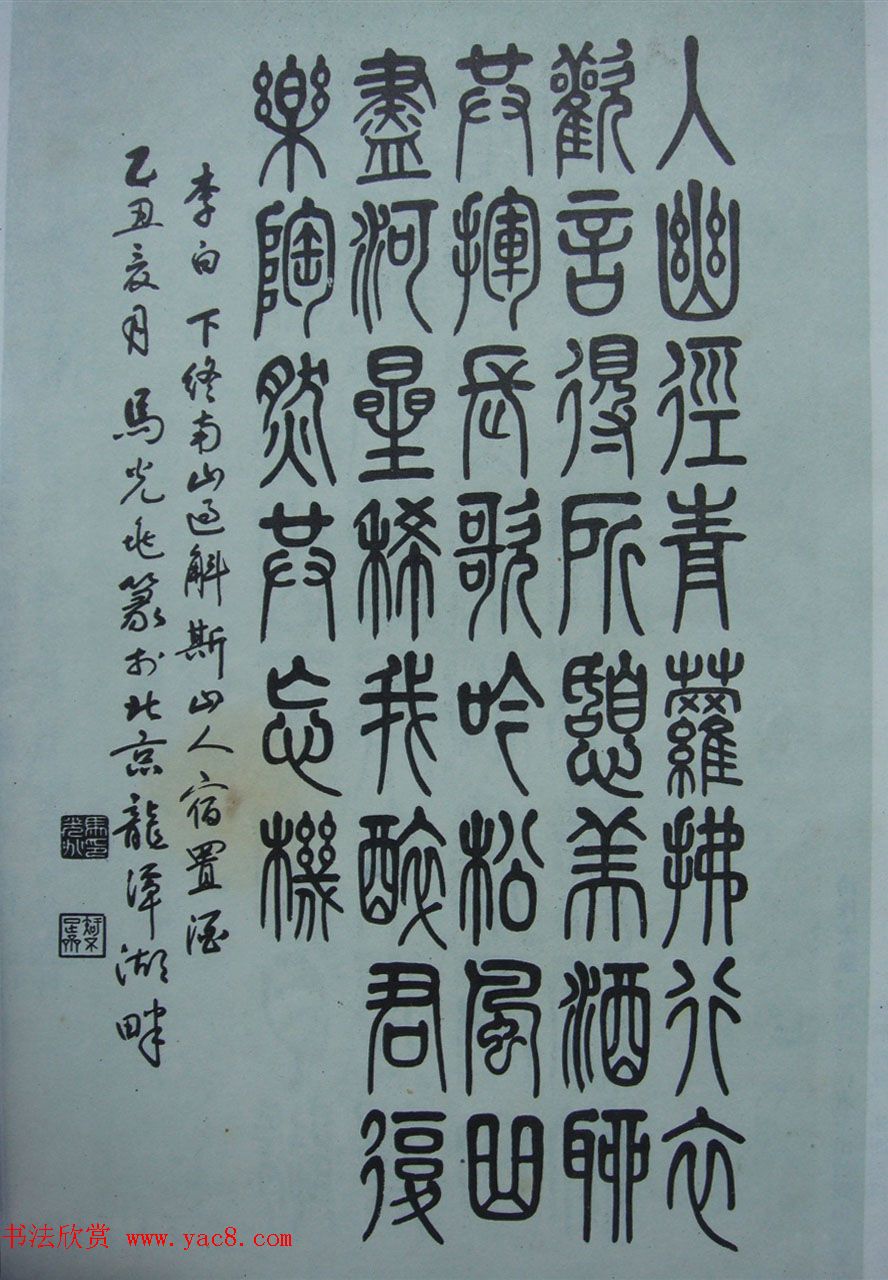 入幽徑青蘿拂行衣
歡言得所憩美酒聊
共揮長歌吟松風曲
盡河星稀我醉君復
樂陶然共忘機
李白下終南山過斛斯山人宿置酒
乙丑亥月馬光兆篆於北京龍潭湖畔
书法欣赏 www.yac8.com